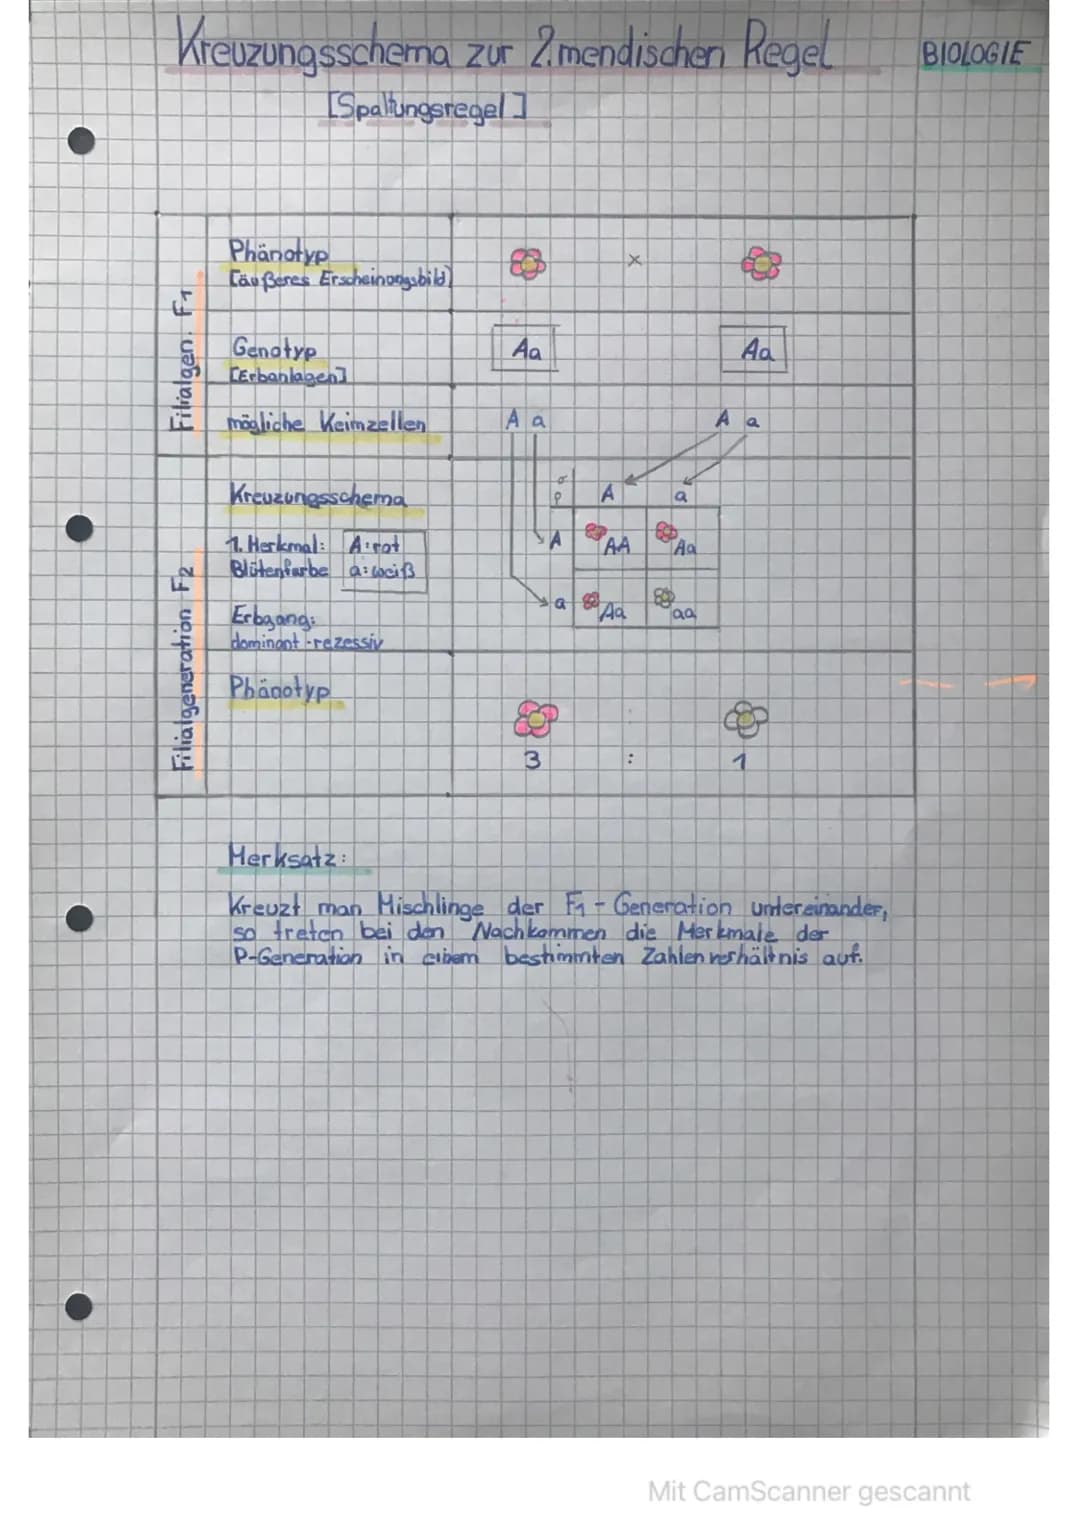 Kreuzungsschema zur 2. mendischen Regel
BIOLOGIE
[Spaltungsregel]
Filialgen. F1
Phänotyp
[äußeres Erscheinungsbild]
x
Genotyp
[Erbanlagen]
Aa
Aa
mögliche Keimzellen
A a
A a
Filialgeneration F2
Kreuzungsschema
♂
♀
A
a
1. Merkmal: A: rot
Blütenfarbe a: weiß
A
AA
Aa
Erbgang:
dominant-rezessiv
a
Aa
aa
Phänotyp
3 : 1
Merksatz:
Kreuzt man Mischlinge der F1-Generation untereinander,
so treten bei den Nachkommen die Merkmale der
P-Generation in bestimmten Zahlenverhältnis auf.
Mit CamScanner gescannt